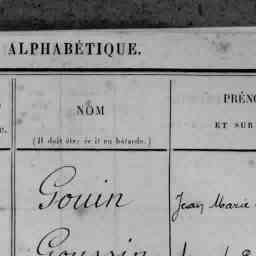 ALPHABÉTIQUE.
NOM
(Il doit être écrit en bâtarde.)
PRÉNO
ET SUR
Gouin
Jean Marie
Goussin